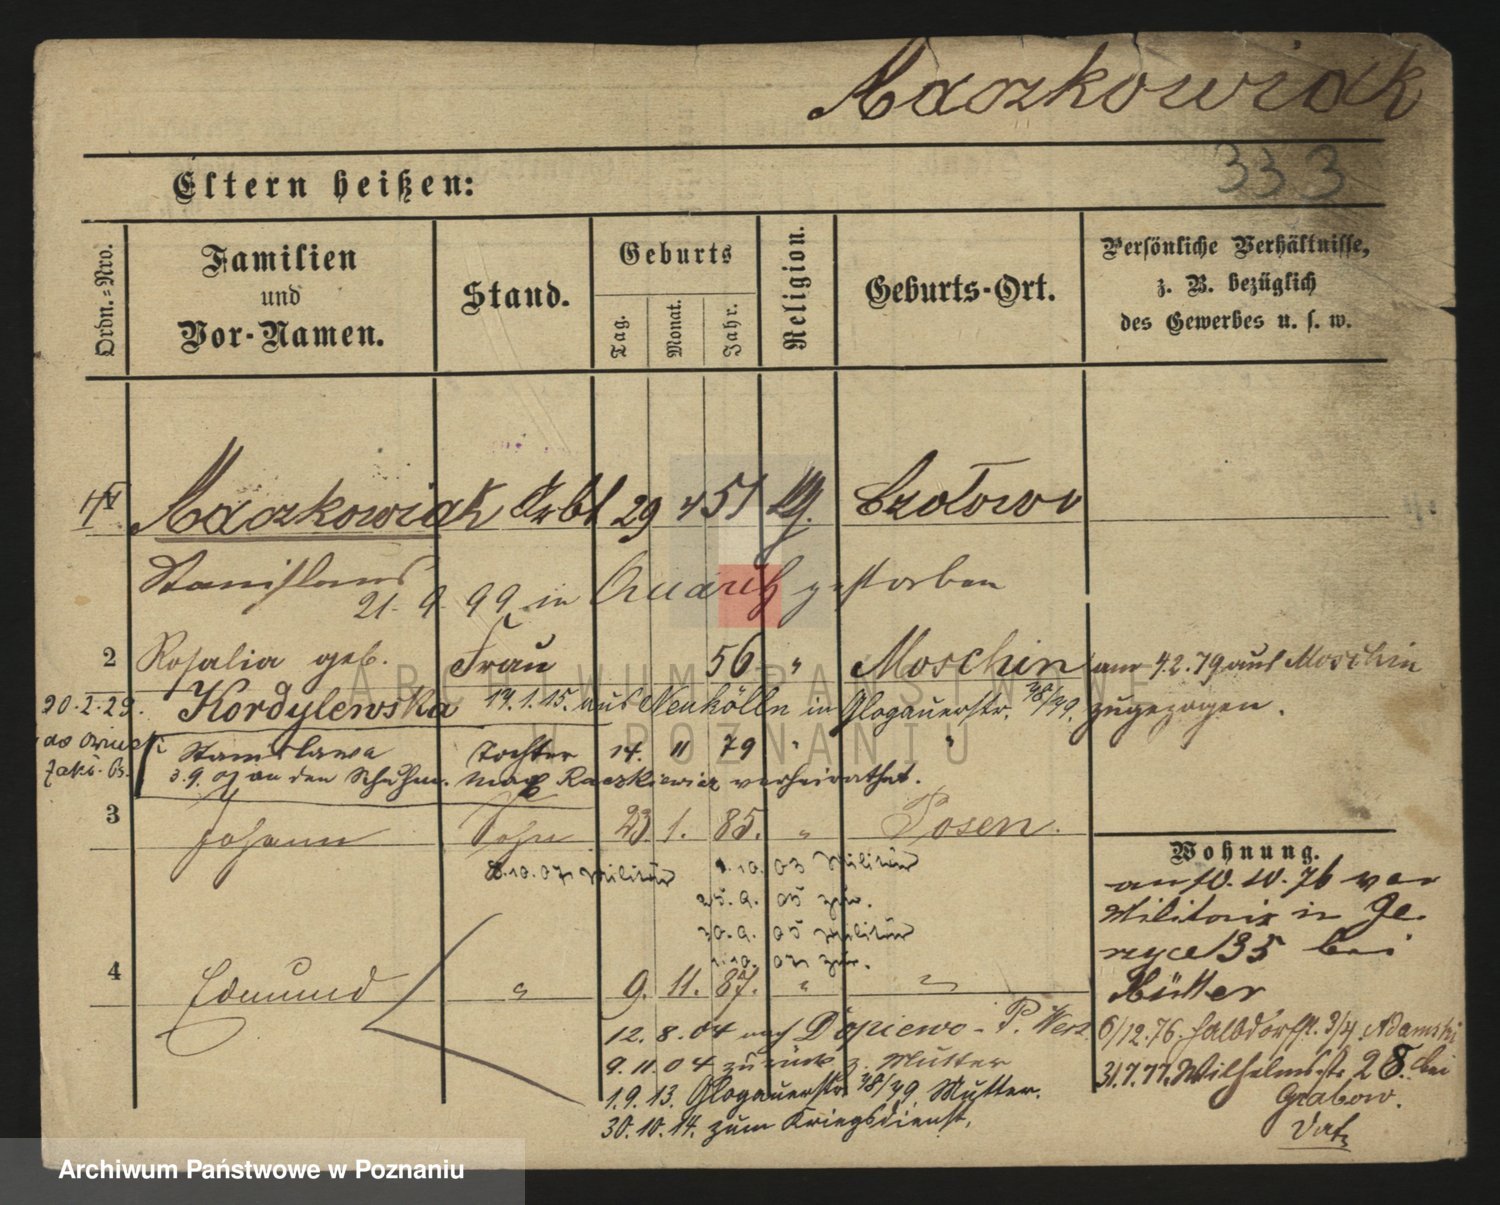 Maczkowiak
333
Eltern heißen:
Ordn.=Nro.
Familien
und
Vor-Namen.
Stand.
Geburts
Tag.
Monat.
Jahr.
Religion.
Geburts-Ort.
Persönliche Verhältnisse,
z. B. bezüglich
des Gewerbes u. s. w.
Maczkowiak Arbt 29 4 51 Czołowo
Stanislaus
21. 9. 99 in gestorben
2 Rosalia geb. Frau 56 " Moschin am 4.2.79 aus Moschin
20.2.29. Kordylewska 14.1.15. aus Neukölln in Glogauerstr. 48/49. zugezogen.
Stanislawa Tochter 14. 11 79 " "
3.9.01 an den Schuhm. Max Raczkiewicz verheirathet.
3 Johann Sohn 23. 1. 85. " Posen.
Wohnung.
8.10.07 Militär 1.10.03 Militär
25.9.05 zur.
30.9.05 Militär
zur.
an 10.10.76 vor
Militair in Je-
rzyce 135 bei
Mütter
4 Edmund " 9. 11. 87. " "
12.8.04 nach Dopiewo - P. West
9.11.04 zurück z. Mutter
1.9.13. Glogauerstr. 48/49 Mutter.
30.10.14. zum Kriegsdienst.
6/12.76. Halbdorfst. 3/4 Adamski
31.7.77. Wilhelmstr. 28. bei
Grabow.
Archiwum Państwowe w Poznaniu
ARCHIWUM PAŃSTWOWE
W POZNANIU